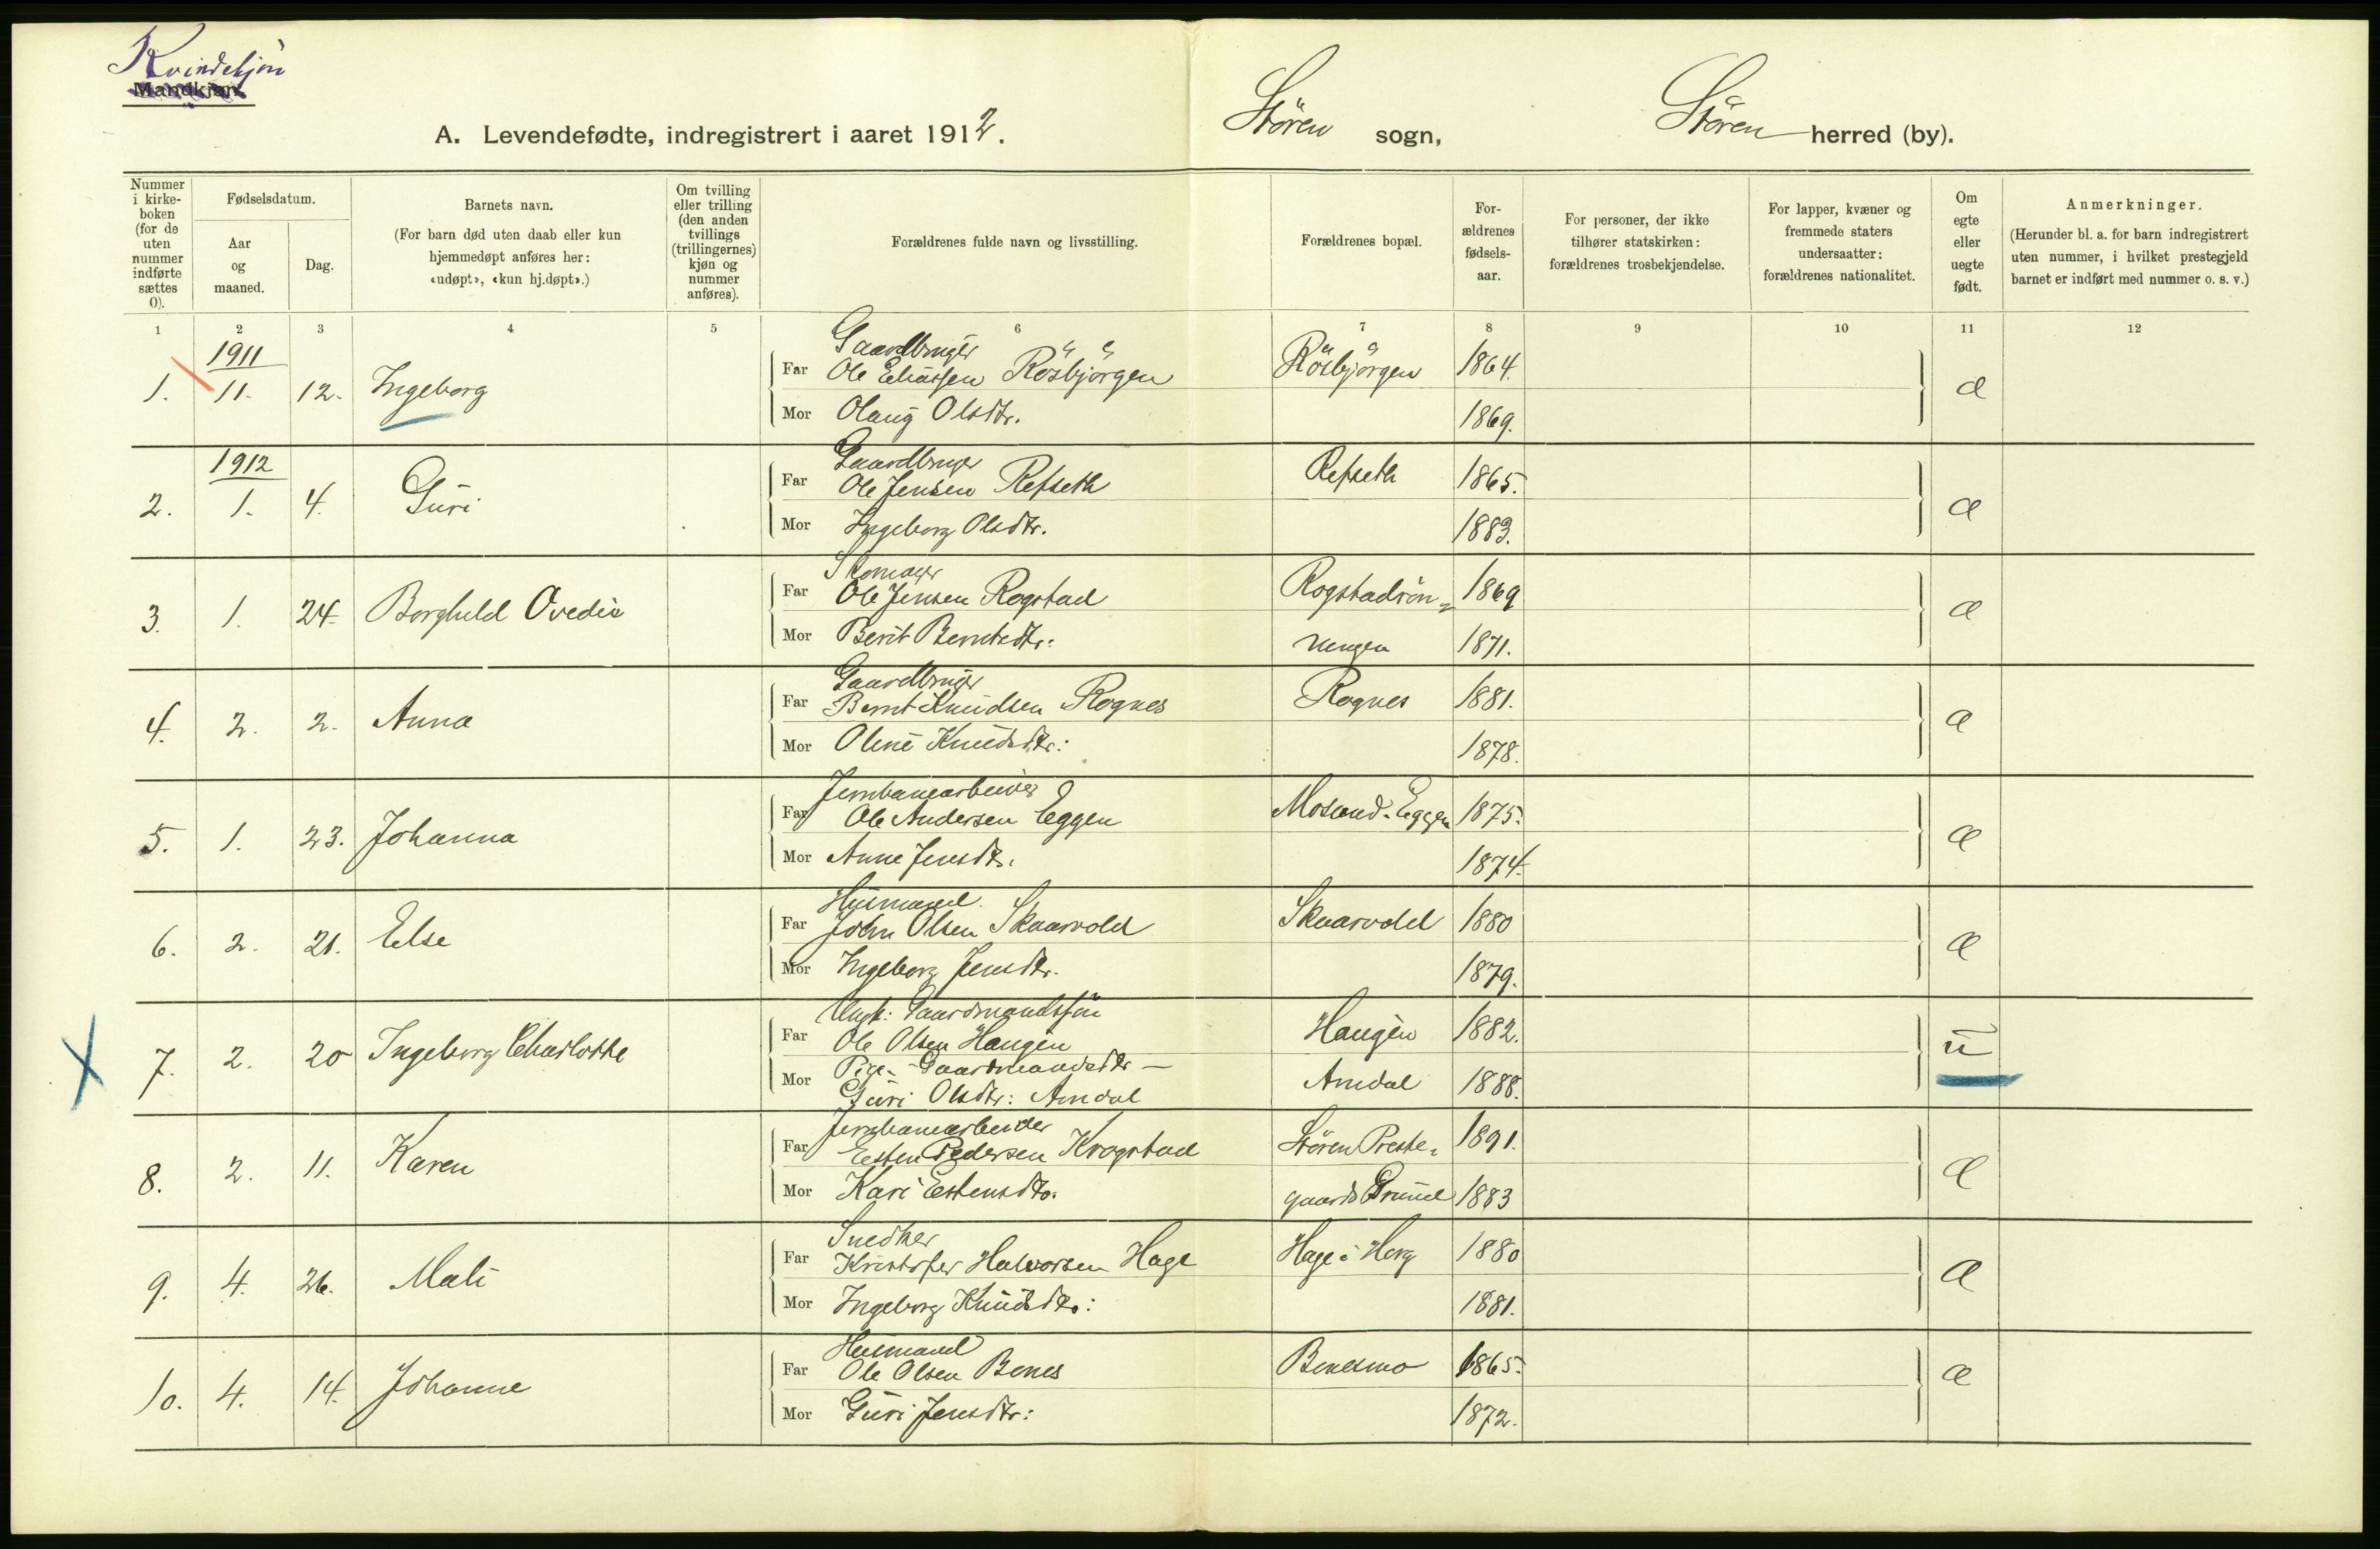 Kvindekjön
Mandkjøn.
A. Levendefødte, indregistrert i aaret 1912.
Stören sogn,
Stören herred (by).
Nummer i kirke-boken (for de uten nummer indførte sættes 0).
Fødselsdatum.
Aar og maaned.
Dag.
Barnets navn.
(For barn død uten daab eller kun hjemmedøpt anføres her: «udøpt», «kun hj.døpt».)
Om tvilling eller trilling (den anden tvillings (trillingernes) kjøn og nummer anføres).
Forældrenes fulde navn og livsstilling.
Forældrenes bopæl.
For-ældrenes fødsels-aar.
For personer, der ikke tilhører statskirken: forældrenes trosbekjendelse.
For lapper, kvæner og fremmede staters undersaatter: forældrenes nationalitet.
Om egte eller uegte født.
Anmerkninger.
(Herunder bl. a. for barn indregistrert uten nummer, i hvilket prestegjeld barnet er indført med nummer o. s. v.)
1 2 3 4 5 6 7 8 9 10 11 12
1911
Gaardbruger
1. 11. 12. Ingeborg Far Ole Eliassen Rösbjörgen Rösbjörgen 1864. æ
Mor Olaug Olsdtr. 1869.
1912
Gaardbruger
2. 1. 4. Guri Far Ole Jensen Refseth Refseth 1865. æ
Mor Ingeborg Olsdtr. 1883.
Skomager
3. 1. 24. Borghild Ovedie Far Ole Jensen Rogstad Rogstadrön- 1869 æ
Mor Berit Berntsdtr: ningen 1871.
Gaardbruger
4. 2. 2. Anna Far Bernt Knudsen Rognes Rognes 1881. æ
Mor Oline Knudsdtr: 1878.
Jernbanearbeider
5. 1. 23. Johanna Far Ole Andersen Eggen Mosand-Eggen 1875. æ
Mor Anne Jensdtr. 1874.
Husmand
6. 2. 21. Else Far John Olsen Skaarvold Skaarvold 1880 æ
Mor Ingeborg Jensdtr. 1879.
Ungk: Gaardmandssön
7. 2. 20 Ingeborg Charlotte Far Ole Olsen Haugen Haugen 1882. u
Pige- Gaardmandsdtr —
Mor Guri Olsdtr: Amdal Amdal 1888.
Jernbanearbeider
8. 2. 11. Karen Far Esten Pedersen Krogstad Stören Preste- 1891. æ
Mor Kari Estensdtr. gaards Grund 1883
Snedker
9. 4. 26. Mali Far Kristofer Halvorsen Hage Hage i Horg 1880 æ
Mor Ingeborg Knudsdtr: 1881.
Husmand
10. 4. 14. Johanne Far Ole Olsen Bones Bonesmo 1865. æ
Mor Guri Jensdtr: 1872.